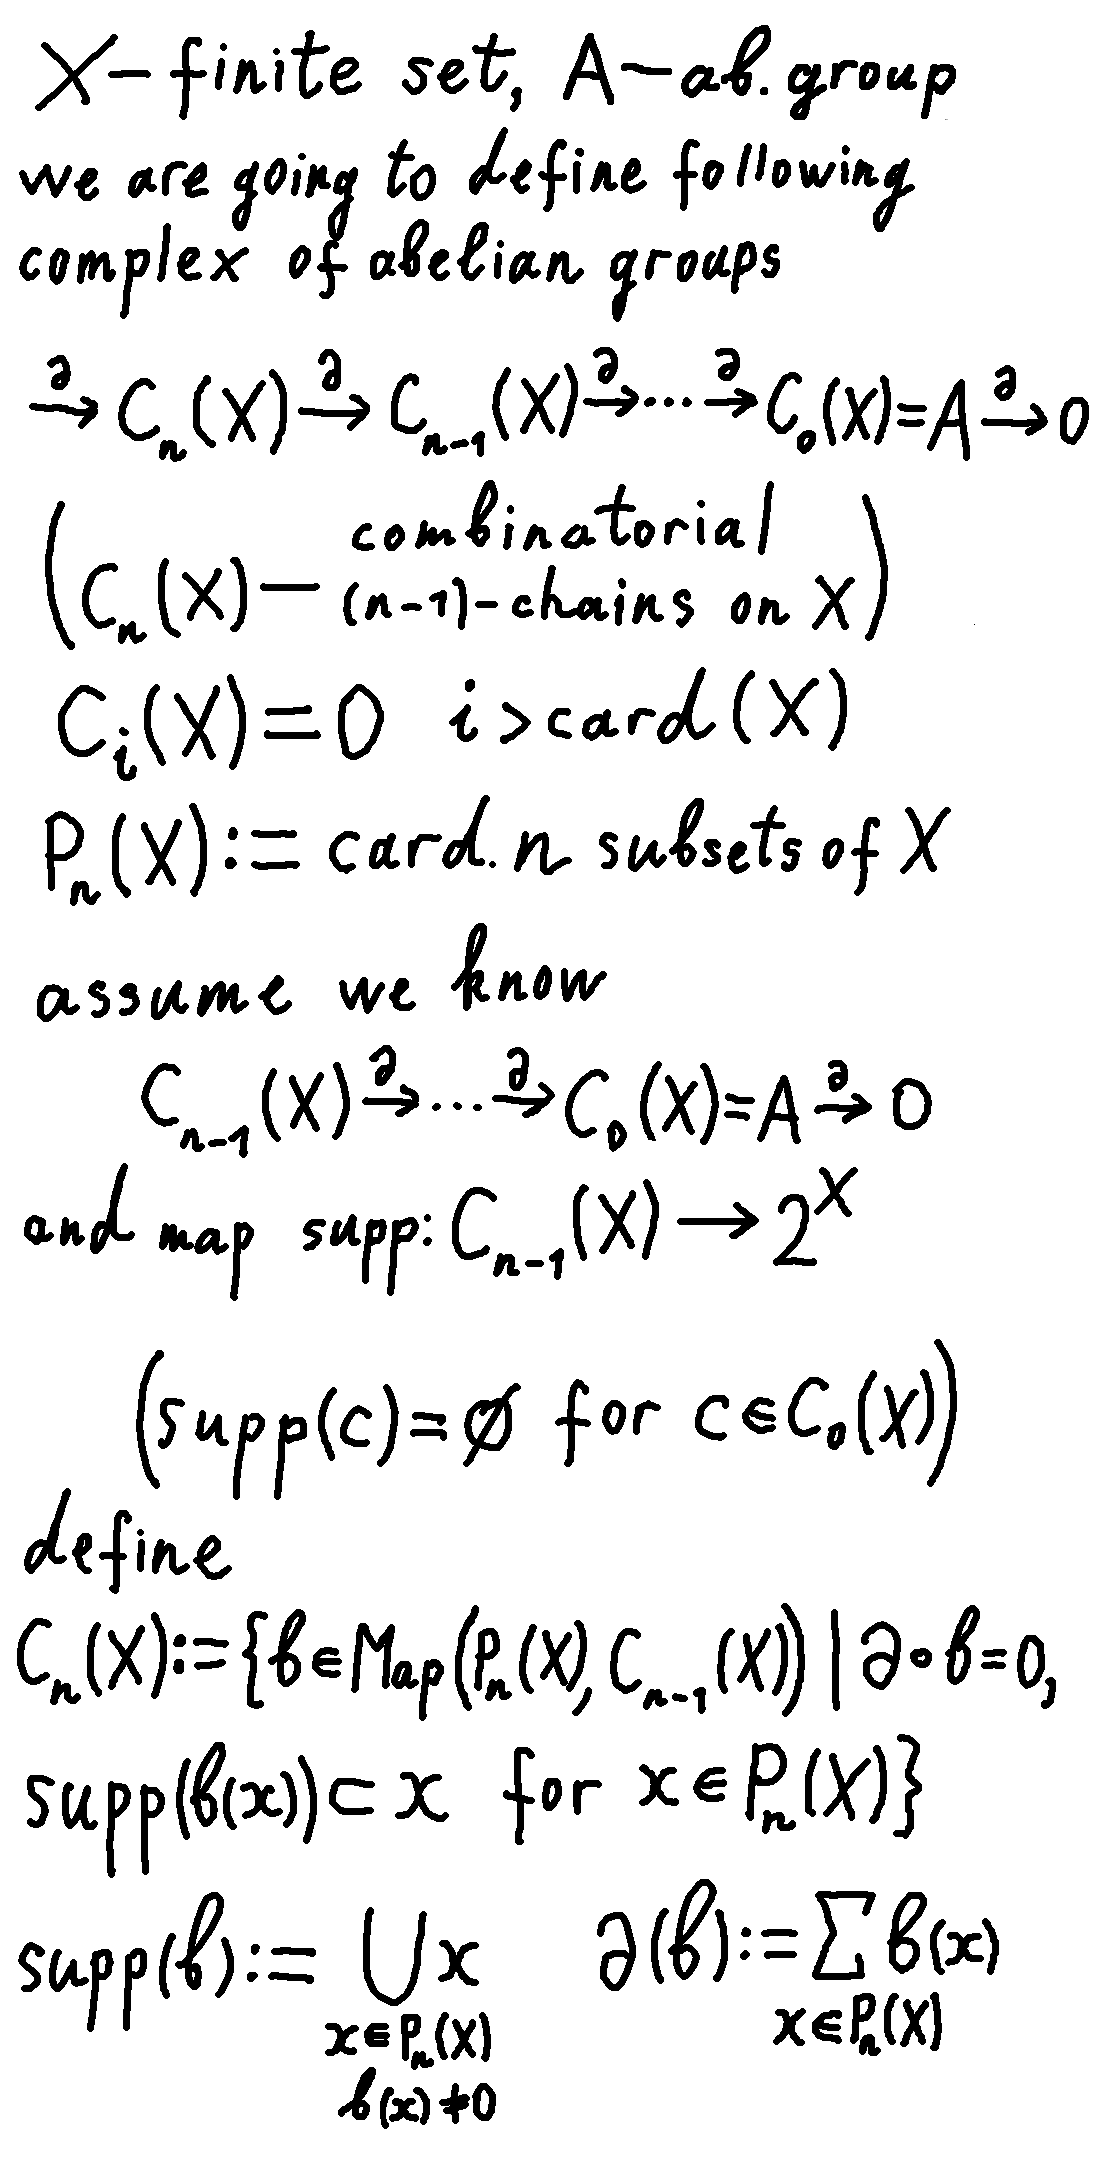 X – finite set, A – ab. group
we are going to define following
complex of abelian groups
∂→ Cₙ(X) ∂→ Cₙ₋₁(X) ∂→ ... ∂→ C₀(X) = A ∂→ 0
(Cₙ(X) — combinatorial
(n-1)-chains on X)
Cᵢ(X) = 0 i > card(X)
Pₙ(X) := card. n subsets of X
assume we know
Cₙ₋₁(X) ∂→ ... ∂→ C₀(X) = A ∂→ 0
and map supp: Cₙ₋₁(X) → 2^X
(supp(c) = ∅ for c ∈ C₀(X))
define
Cₙ(X) := {b ∈ Map(Pₙ(X), Cₙ₋₁(X)) | ∂∘b = 0,
supp(b(x)) ⊂ x for x ∈ Pₙ(X)}
supp(b) := ⋃ x ∂(b) := Σ b(x)
x ∈ Pₙ(X) x ∈ Pₙ(X)
b(x) ≠ 0